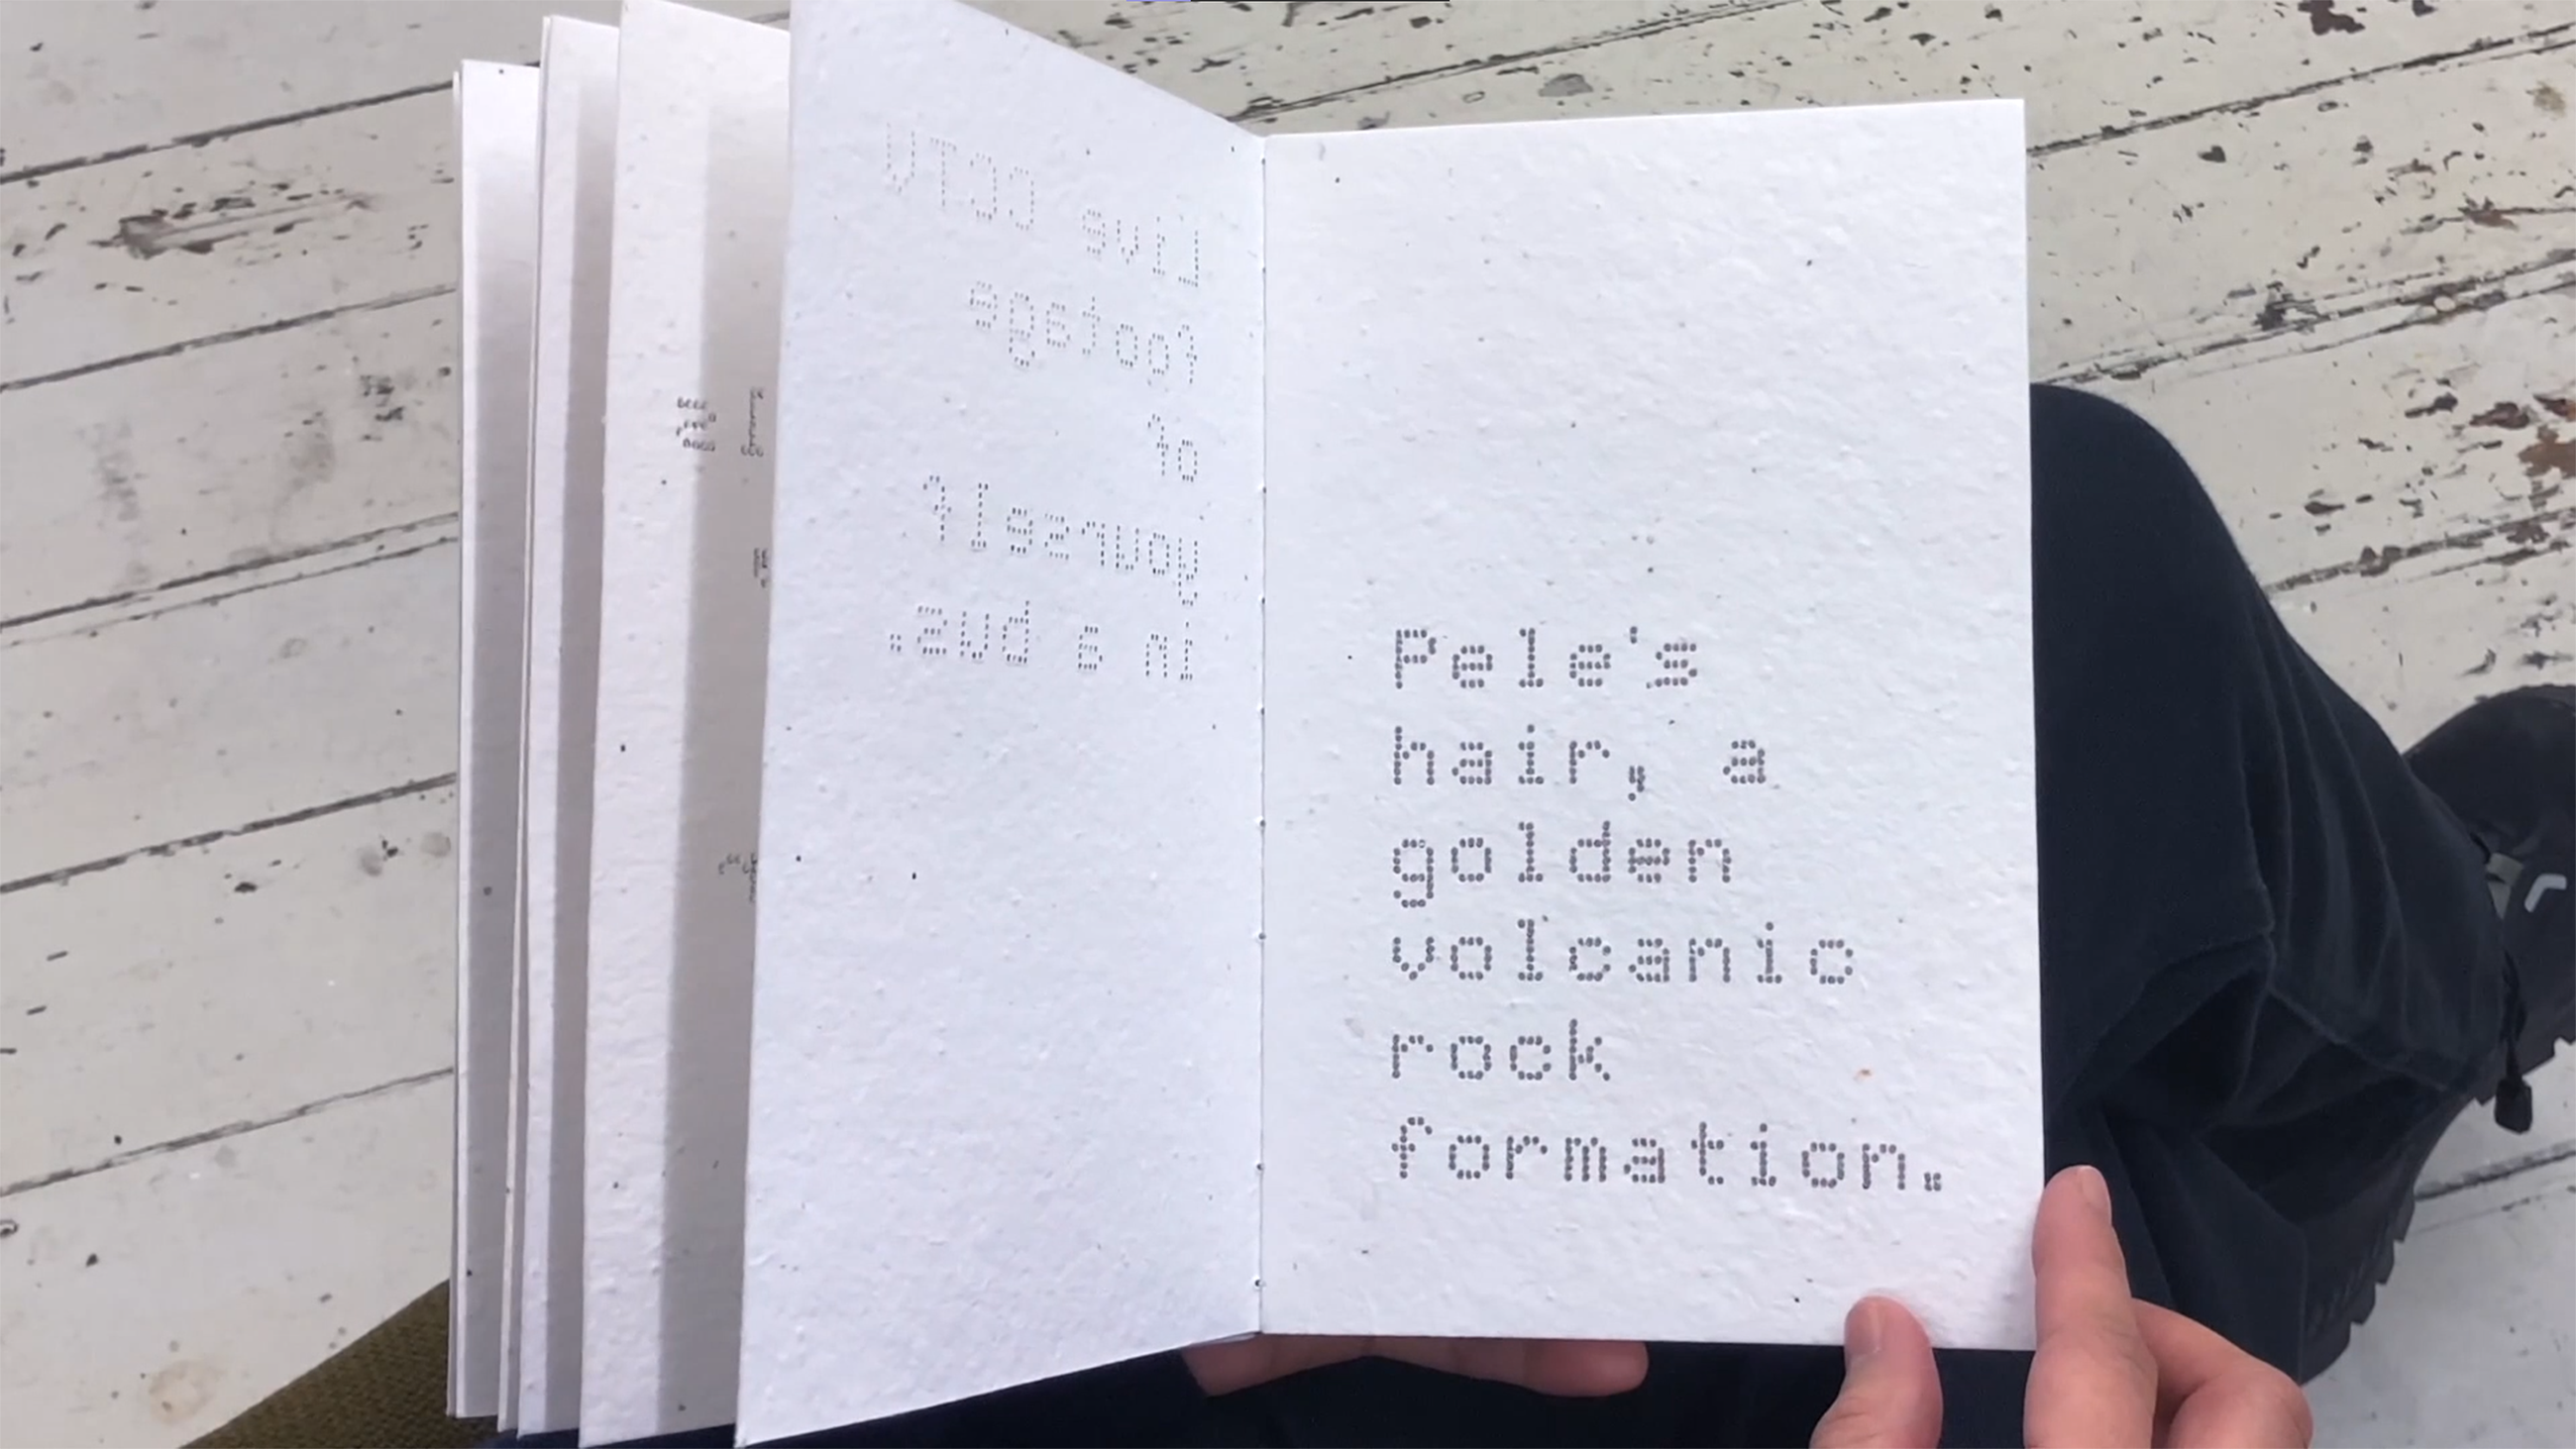 Live CCTV
footage
of
yourself
in a bus.
Pele's
hair, a
golden
volcanic
rock
formation.